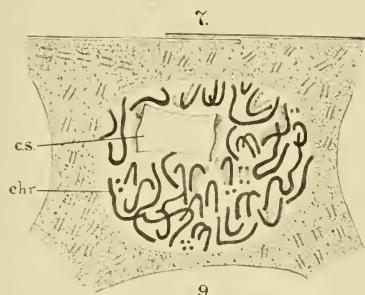 7.
c.s.
chr
9